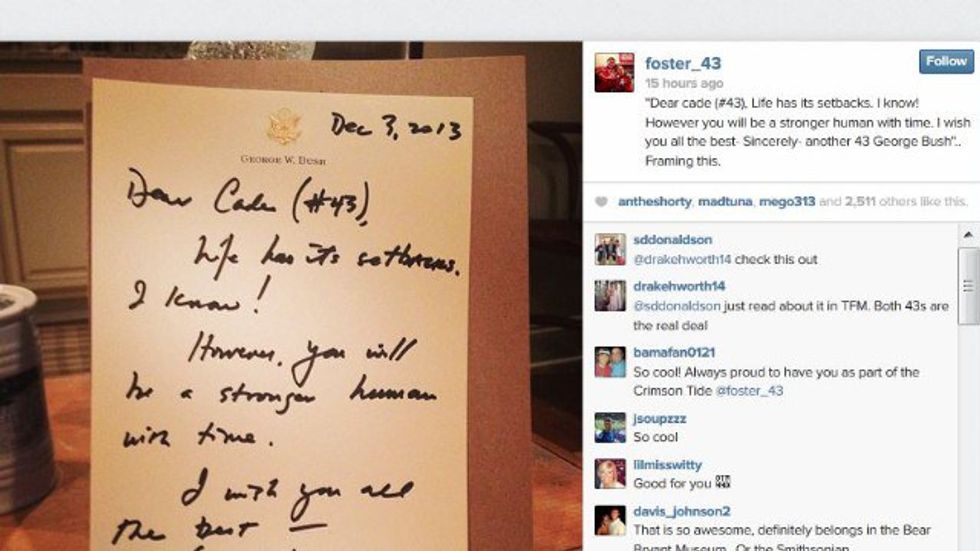 Dec 3, 2013
GEORGE W. BUSH
Dear Cade (#43),
Life has its setbacks.
I know!
However, you will
be a stronger human
with time.
I wish you all
the best —
foster_43
Follow
15 hours ago
"Dear cade (#43), Life has its setbacks. I know!
However you will be a stronger human with time. I wish
you all the best- Sincerely- another 43 George Bush"..
Framing this.
antheshorty, madtuna, mego313 and 2,511 others like this.
sddonaldson
@drakehworth14 check this out
drakehworth14
@sddonaldson just read about it in TFM. Both 43s are
the real deal
bamafan0121
So cool! Always proud to have you as part of the
Crimson Tide @foster_43
jsoupzzz
So cool
lilmisswitty
Good for you
davis_johnson2
That is so awesome, definitely belongs in the Bear
Bryant Museum.. Or the Smithsonian